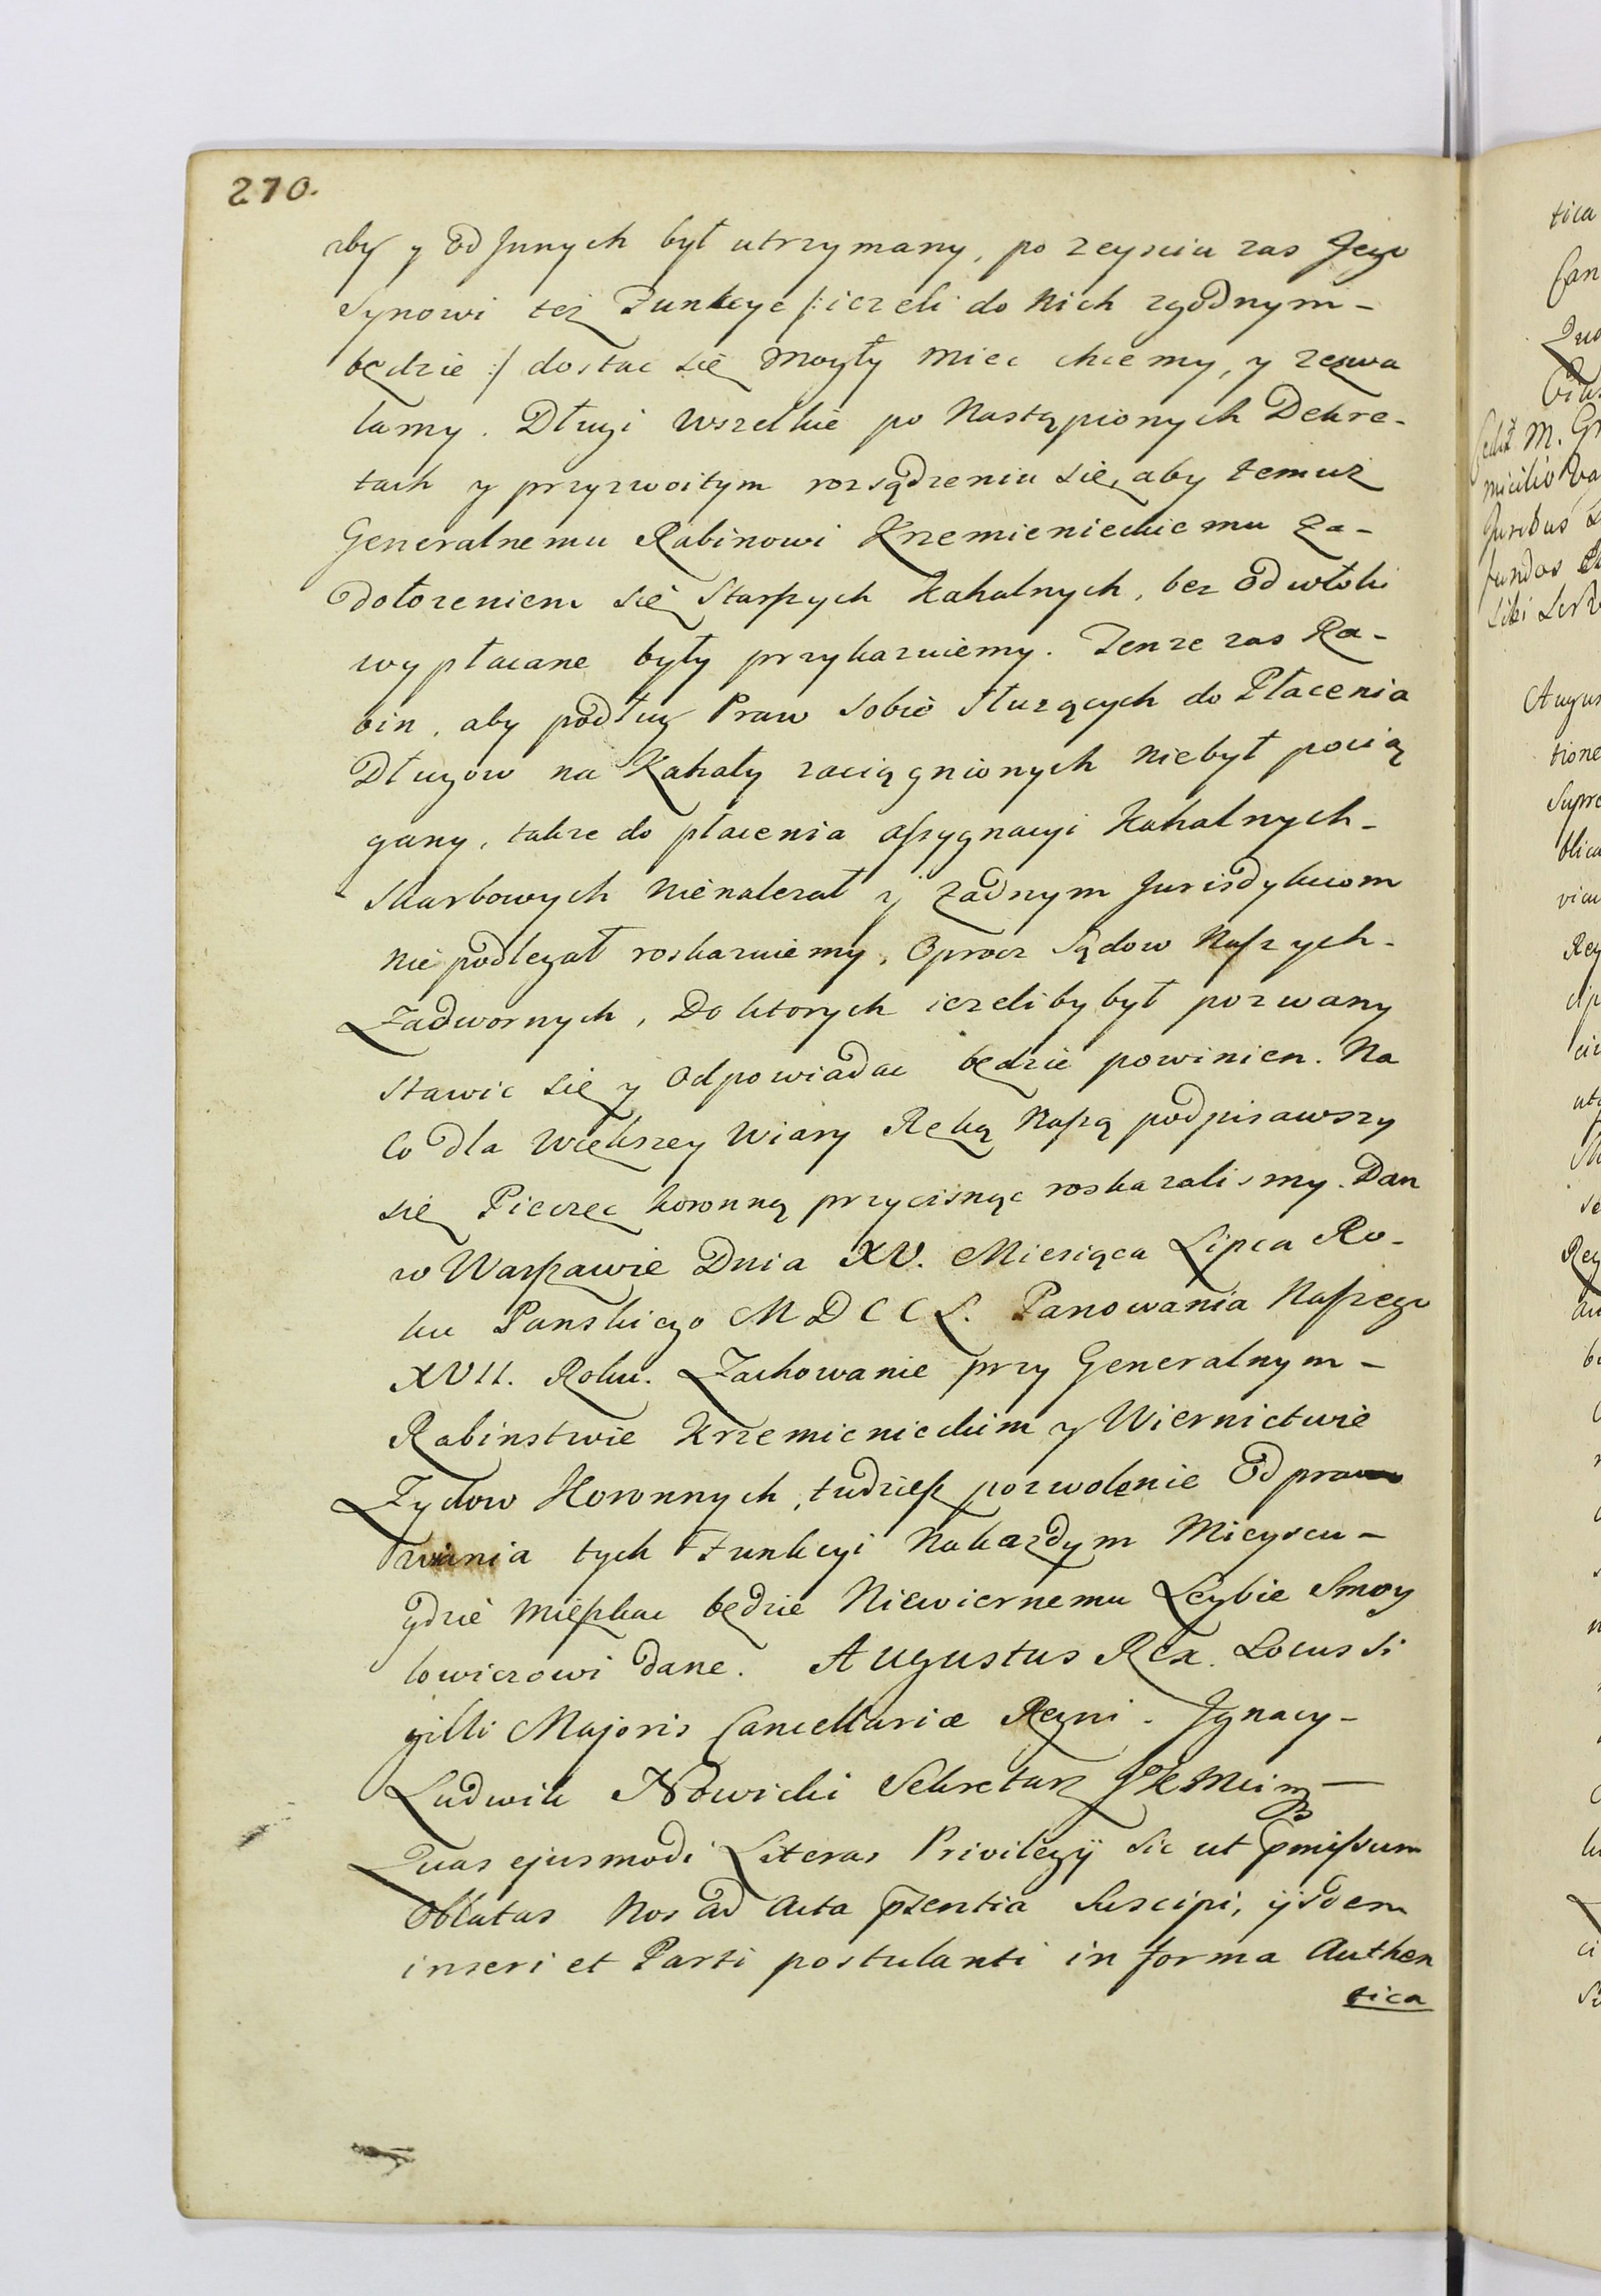 270.
żby y od Jnnych był utrzymany, po zeysciu zas Jego
Synowi też Funkcye /: ieżeli do nich zgodnym -
będzie :/ dostac się mogły miec chcemy, y zezwa
lamy. Długi wszelkie po nastąpionych Dekre-
tach y przyzwoitym rozsądzeniu się, aby temuż
Generalnemu Rabinowi Krzemienieckiemu za-
dołozeniem się Starszych kahalnych, bez odwłoki
wypłacane były przykazuiemy. Tenze zas Ra-
bin, aby podług Praw sobie służących do Płacenia
Długow na Kahały zaciągnionych niebył pocią
gany, takze do płacenia assygnacyi Kahalnych -
Skarbowych nienalezał y żadnym Jurisdykciom
nie podlegał roskazuiemy, oprocz Sądow Naszych -
Zadwornych, do ktorych iezeliby był pozwany
stawic się y odpowiadac będzie powinien. Na
co dla większey wiary Ręką Naszą podpisawszy
się Pieczęc koronną przycisnąc roskazalismy. Dan
w Warszawie Dnia XV. Miesiąca Lipca Ro-
ku Panskiego MDCCL. Panowania Naszego
XVII. Roku. Zachowanie przy Generalnym -
Rabinstwie Krzemienieckim y Wiernictwie
Zydow Koronnych, tudziesz pozwolenie odpra
wiania tych Funkcyi na kazdym Mieyscu -
gdzie mieszkac będzie Niewiernemu Leybie Smoy
lowiczowi dane. Augustus Rex. Locus Si
gilli Majoris Cancellariæ Regni. Jgnacy -
Ludwik Nowicki Sekretarz JKMci mp -
Quas ejusmodi Literas Privilegij sic ut pmissum
oblatas nos ad Acta pzentia suscipi, ijsdem
inseri et Parti postulanti in forma Authen
tica